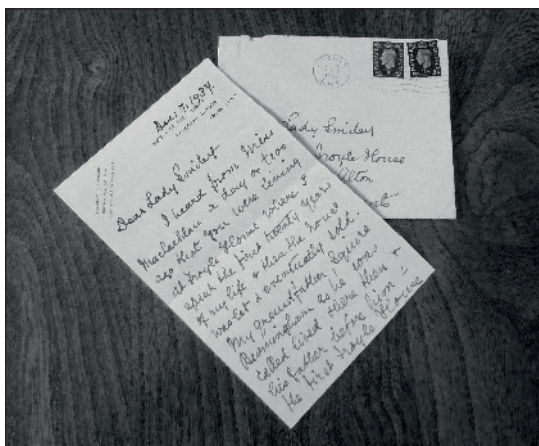 Dec. 7. 1937.
Dear Lady Smiley
I heard from Miss
Maclachlan a day or two
ago that you were living
at Froyle House where I
spent the first twenty years
of my life & then the house
was let & eventually sold.
My grandfather Squire
as he was
called lived there then &
his father before him –
the first Froyle House
Lady Smiley
Froyle House
Alton